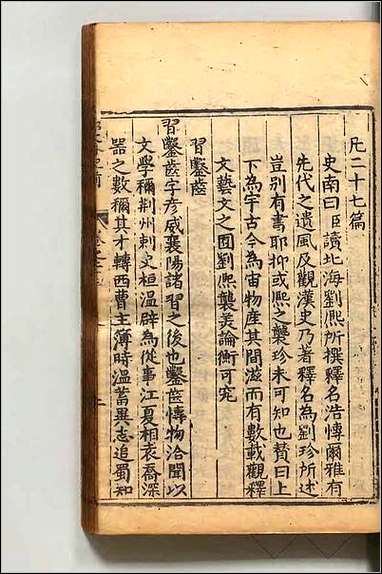 凡二十七篇
史南曰臣讀北海劉熈所撰釋名浩愽爾雅有
先代之遺風及觀漢史乃著釋名為劉珍所述
豈别有書耶抑或熈之襲珍未可知也賛曰上
下為宇古今為宙物産其間滋而有數載觀釋
文藝文之囿劉熈襲美論衡可究
習鑿齒
習鑿齒字彦威襄陽諸習之後也鑿齒愽物洽聞以
文學稱荆州刺史桓温辟為從事江夏相袁喬深
器之數稱其才轉西曹主簿時温蓄異志追蜀知